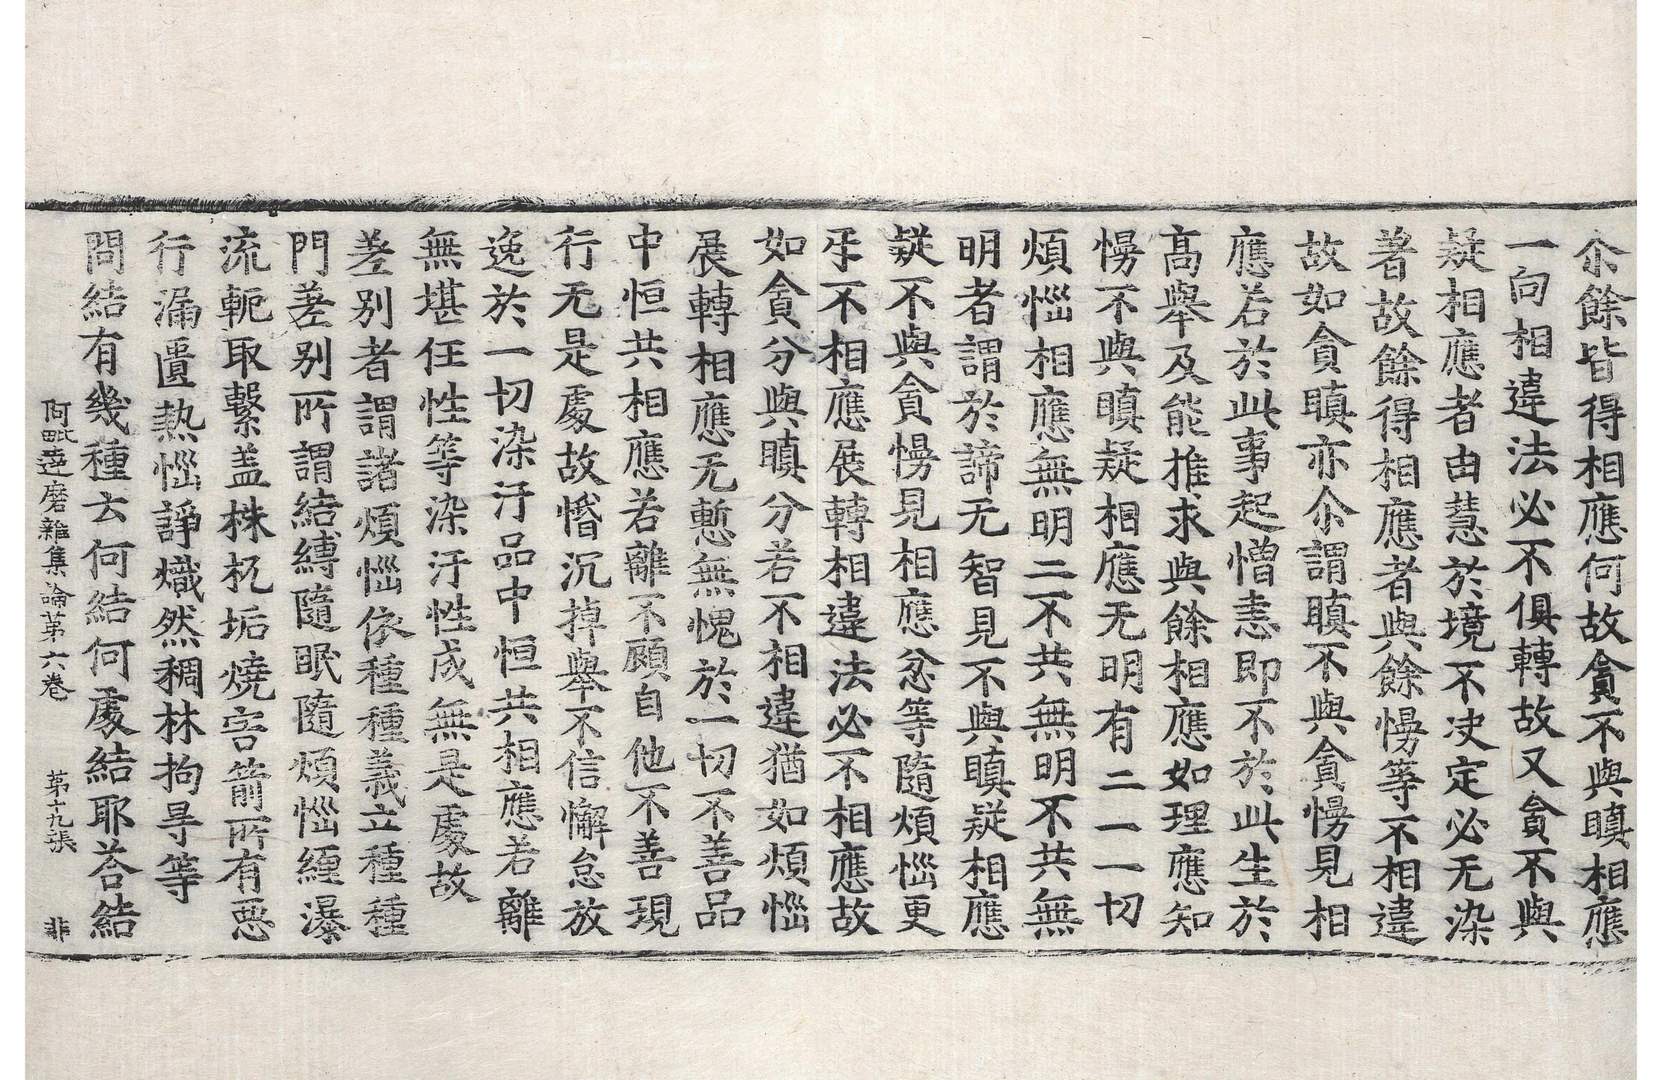 尒餘皆得相應何故貪不與瞋相應
一向相違法必不俱轉故又貪不與
疑相應者由慧於境不决定必无染
著故餘得相應者與餘慢等不相違
故如貪瞋亦尒謂瞋不與貪慢見相
應若於此事起憎恚即不於此生於
高舉及能推求與餘相應如理應知
慢不與瞋疑相應无明有二一一切
煩惱相應無明二不共無明不共無
明者謂於諦无智見不與瞋疑相應
疑不與貪慢見相應忿等隨煩惱更
互不相應展轉相違法必不相應故
如貪分與瞋分若不相違猶如煩惱
展轉相應无慙無愧於一切不善品
中恒共相應若離不顧自他不善現
行无是處故惛沉掉舉不信懈怠放
逸於一切染汙品中恒共相應若離
無堪任性等染汙性成無是處故
差別者謂諸煩惱依種種義立種種
門差别所謂結縛隨眠隨煩惱纏瀑
流軛取繫盖株杌垢燒害箭所有惡
行漏匱熱惱諍熾然稠林拘㝵等
問結有幾種云何結何處結耶荅結
阿毗達磨雜集論第六卷 第十九張 非